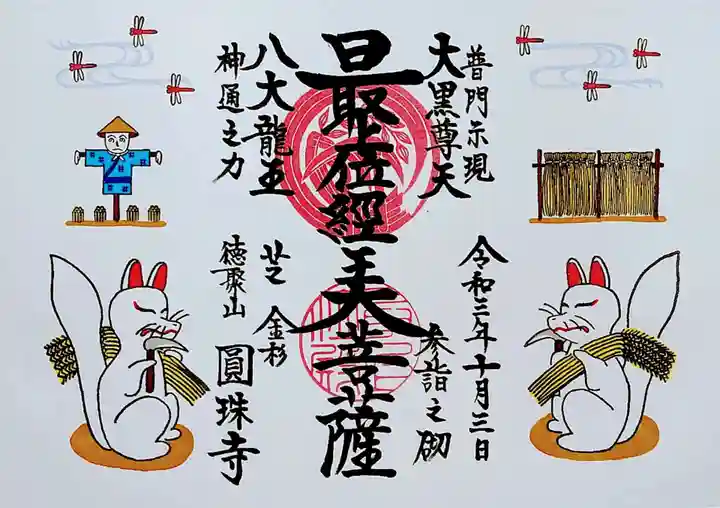 普門示現
大黒尊天
令和三年十月三日
参詣之砌
最上位經王大菩薩
八大龍王
神通之力
芝金杉
徳聚山
圓珠寺